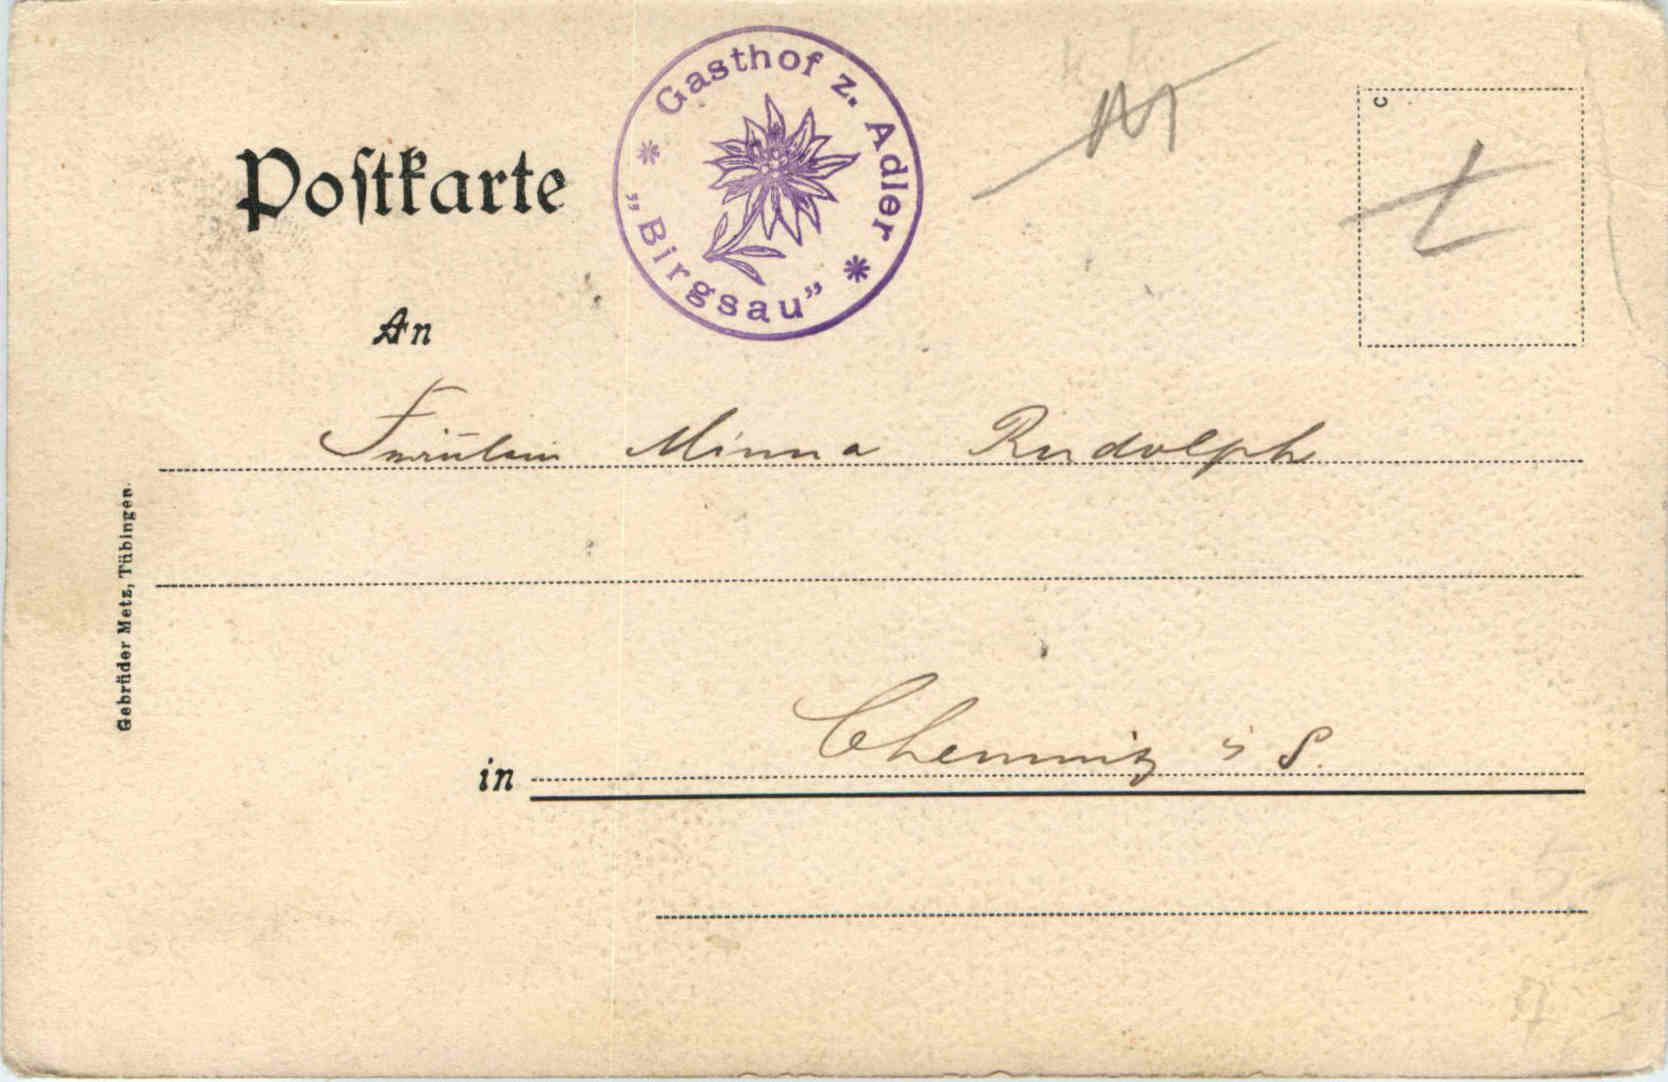 Postkarte
* Gasthof z. Adler *
„Birgsau”
An
Fräulein Minna Rudolph
Gebrüder Metz, Tübingen.
in Chemnitz i S.